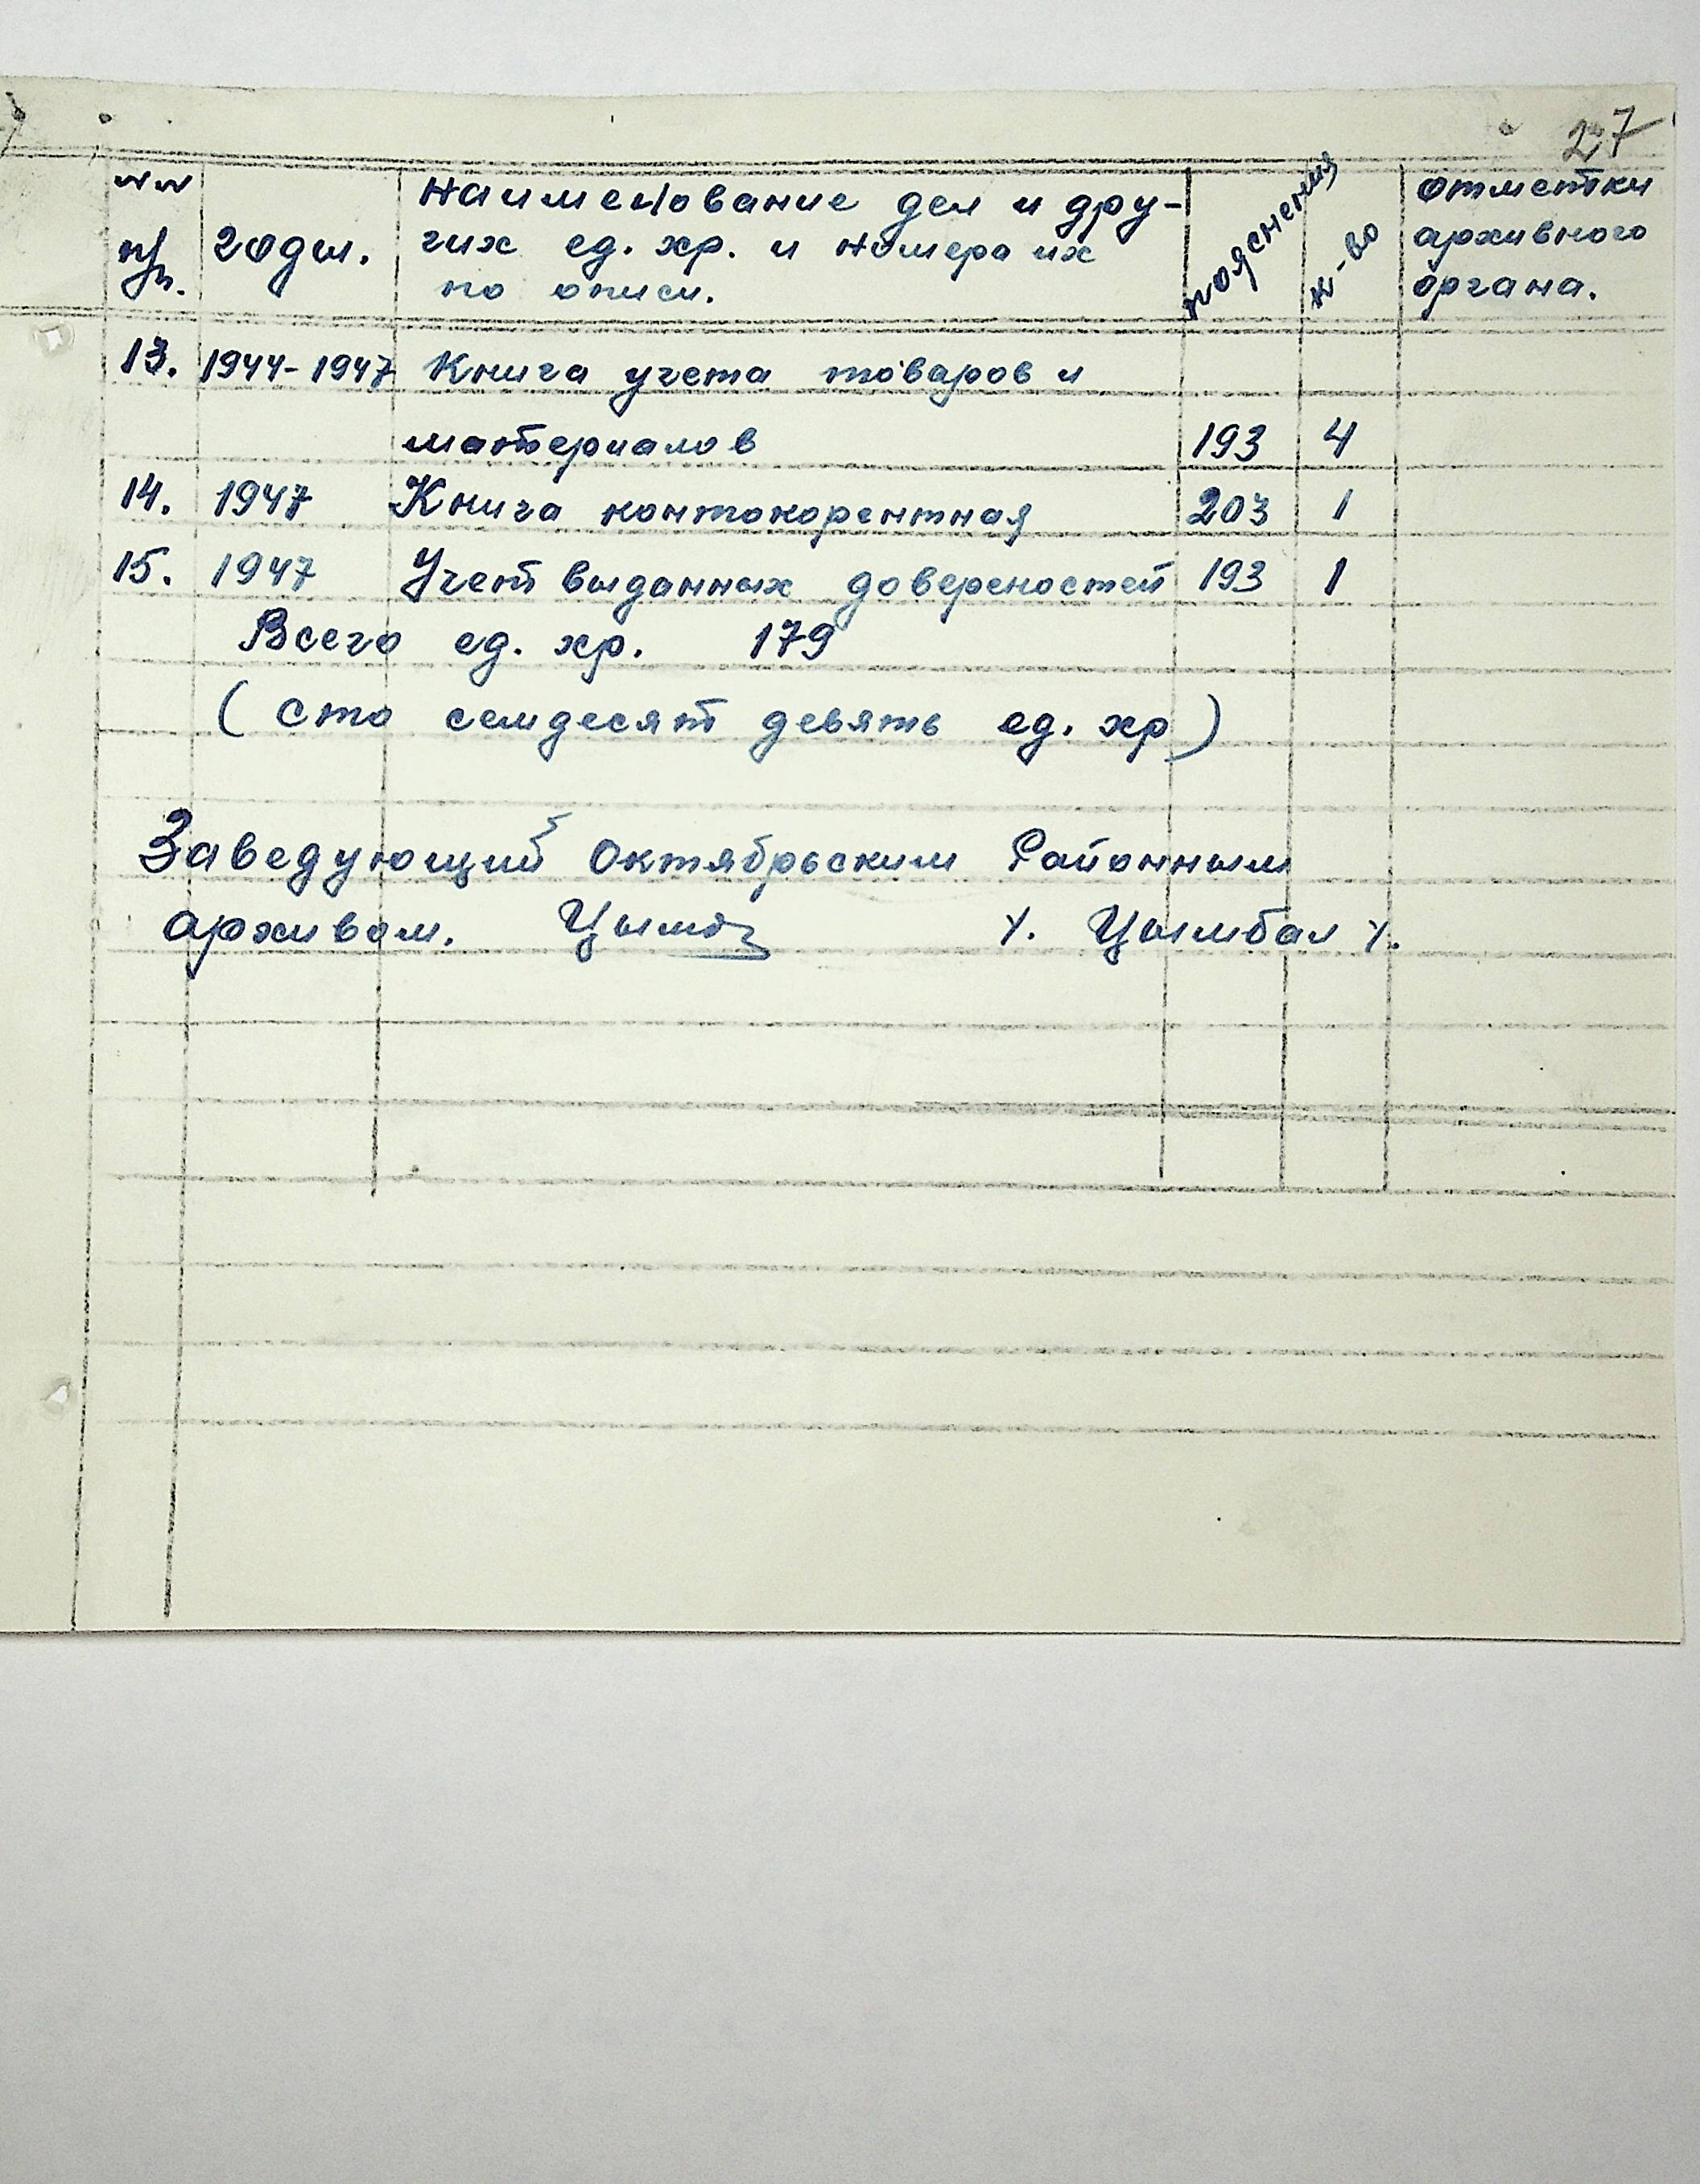 27
№№ п/п. годы. наименование дел и дру- пояснения к-во отметки
гих ед. хр. и номера их архивного
по описи. органа.
13. 1944-1947 Книга учета товаров и
материалов 193 4
14. 1947 Книга контокорентная 203 1
15. 1947 Учет выданных довереностей 193 1
Всего ед. хр. 179
( сто семдесят девять ед. хр )
Заведующий Октябрьским Районным
архивом. Цымб /. Цымбал /.